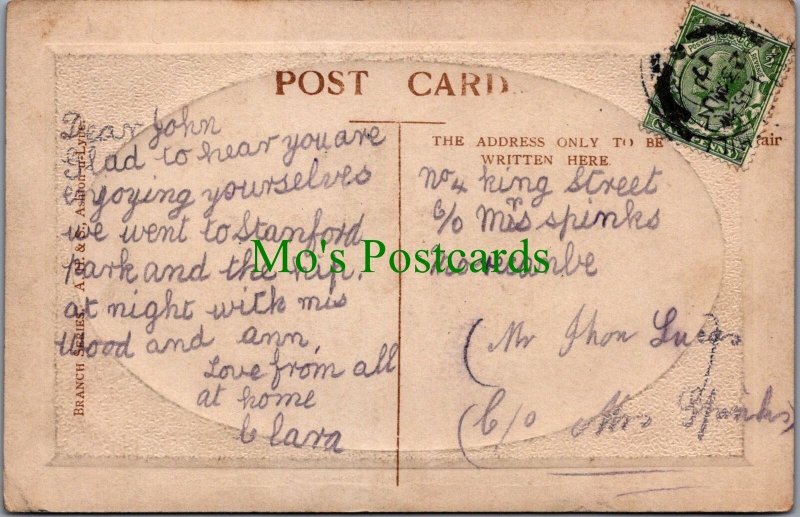 POST CARD
Dear John
glad to hear you are
enjoying yourselves
we went to Stanford
Park and the Hip.
at night with mis
Wood and ann,
Love from all
at home
Clara
THE ADDRESS ONLY TO BE
WRITTEN HERE
no 4 king Street
C/o Mrs spinks
(Mr Jhon Lucas
(C/o Mrs Spinks)
Mo's Postcards
BRANCH SERIES. Ashton-u-Lyne.